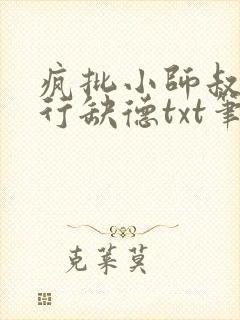 疯批小师叔
行缺德txt笔
克莱莫